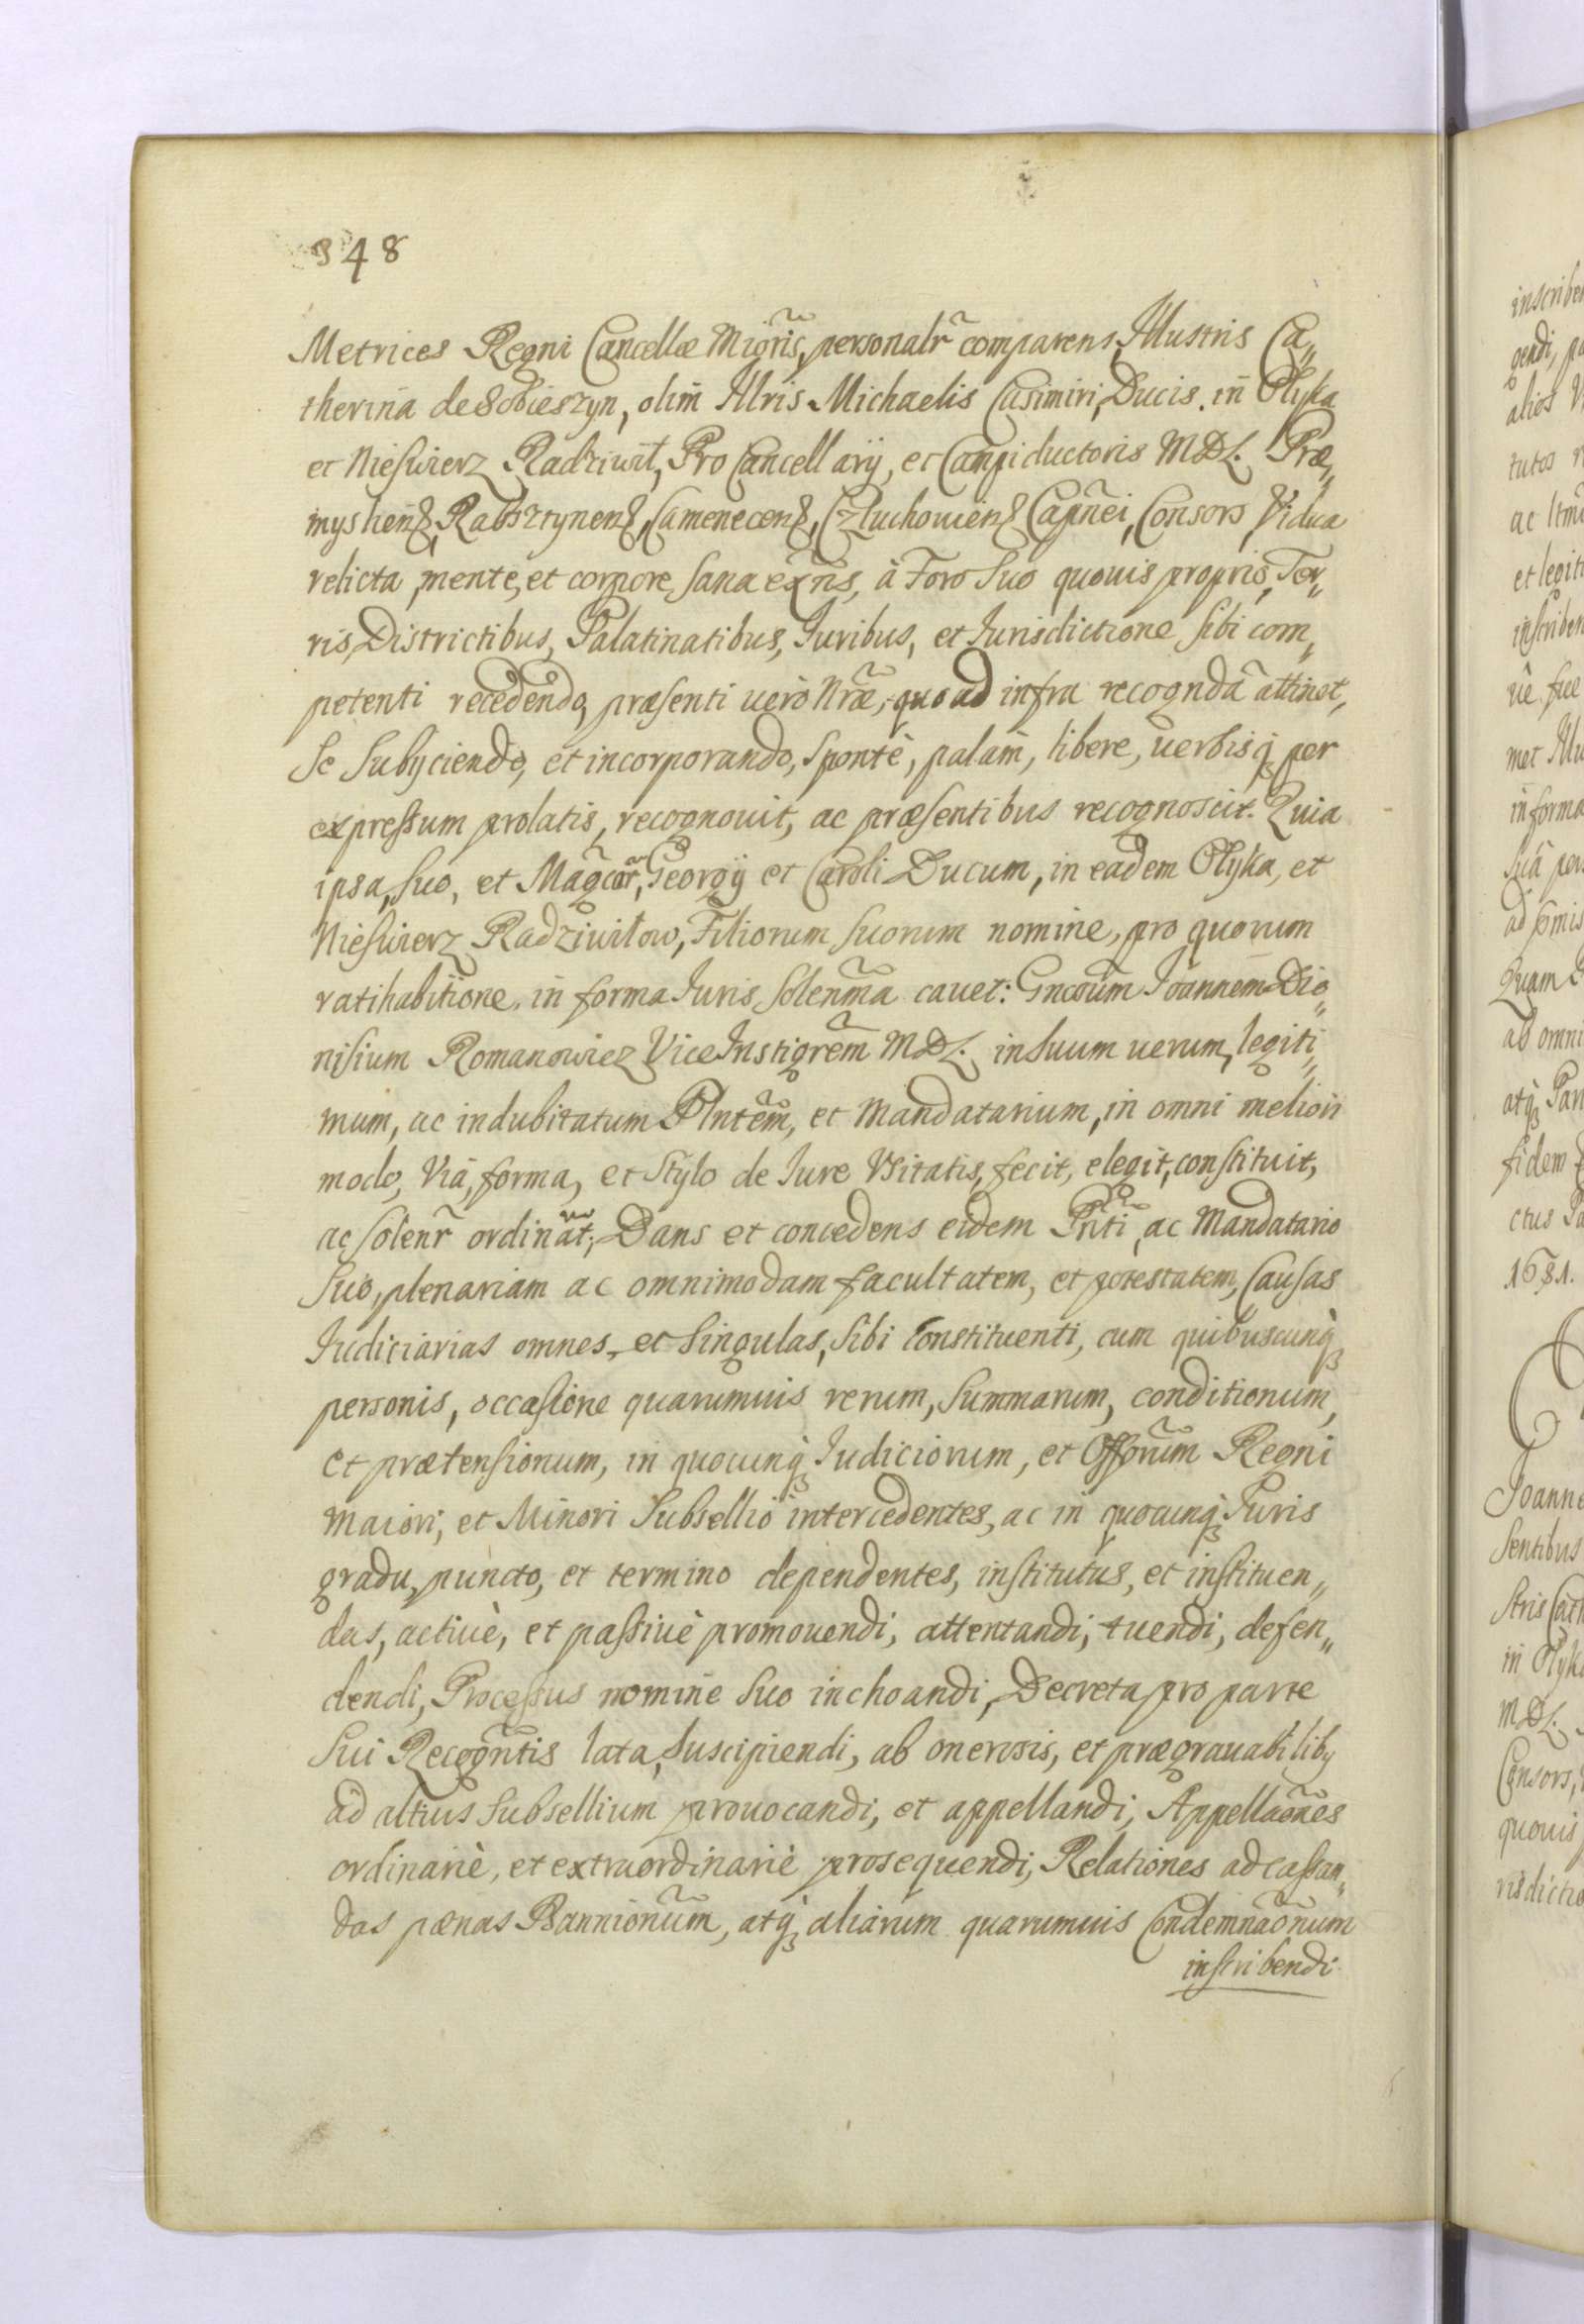 348
Metrices Regni Cancellæ Mioris, personalr comparens Illustris Ca„
therina de Sobieszyn, olim Illris Michaelis Casimiri, Ducis in Olyka
et Nieswierz Radziwił, Pro Cancellarij, et Campiductoris MDL. Præ„
myslien, Rabsztynen, Camenecen, Człuchowien Capnei, Consors Vidua
relicta, mente, et corpore sana exns, à Foro suo quouis proprio, Ter„
ris, Districtibus, Palatinatibus, Iuribus, et Iurisdictione sibi com„
petenti recedendo, præsenti uerò Nræ, quo ad infra recognda attinet,
se subijciendo, et incorporando, sponte, palam, libere, uerbisq per
expressum prolatis, recognouit, ac præsentibus recognoscit. Quia
ipsa, suo, et Magcor, Georgij et Caroli Ducum, in eadem Olyka, et
Nieswierz Radziwiłow, Filiorum suorum nomine, pro quorum
ratihabitione, in forma Iuris solenma cauet: Gncoum Joannem Dio„
nisium Romanowicz Vice Instigrem MDL. in suum uerum, legiti„
mum, ac indubitatum Plntem, et Mandatarium, in omni meliori
modo, Via, forma, et Stylo de Iure Vsitatis, fecit, elegit, constituit,
ac solenr ordinat; Dans et concedens eidem Pnti, ac Mandatario
suo, plenariam ac omnimodam facultatem, et potestatem, Causas
Iudiciarias omnes, et singulas, sibi Constituenti, cum quibuscunq
personis, occasione quarumuis rerum, summarum, conditionum,
et prætensionum, in quocunq Iudiciorum, et Offorum Regni
Maiori, et Minori Subsellio intercedentes, ac in quocunq Iuris
gradu, puncto, et termino dependentes, institutus, et instituen„
das, actiuè, et passiuè promouendi, attentandi, tuendi, defen„
dendi, Processus nomine suo inchoandi, Decreta pro parte
sui Recogntis lata, suscipiendi, ab onerosis, et prægrauabiliby
ad altius subsellium prouocandi, et appellandi, Appellaones
ordinariè, et extraordinariè prosequendi, Relationes ad cassan„
das pænas Bannionum, atq aliarum quarumuis Condemnaonum
inscribendi